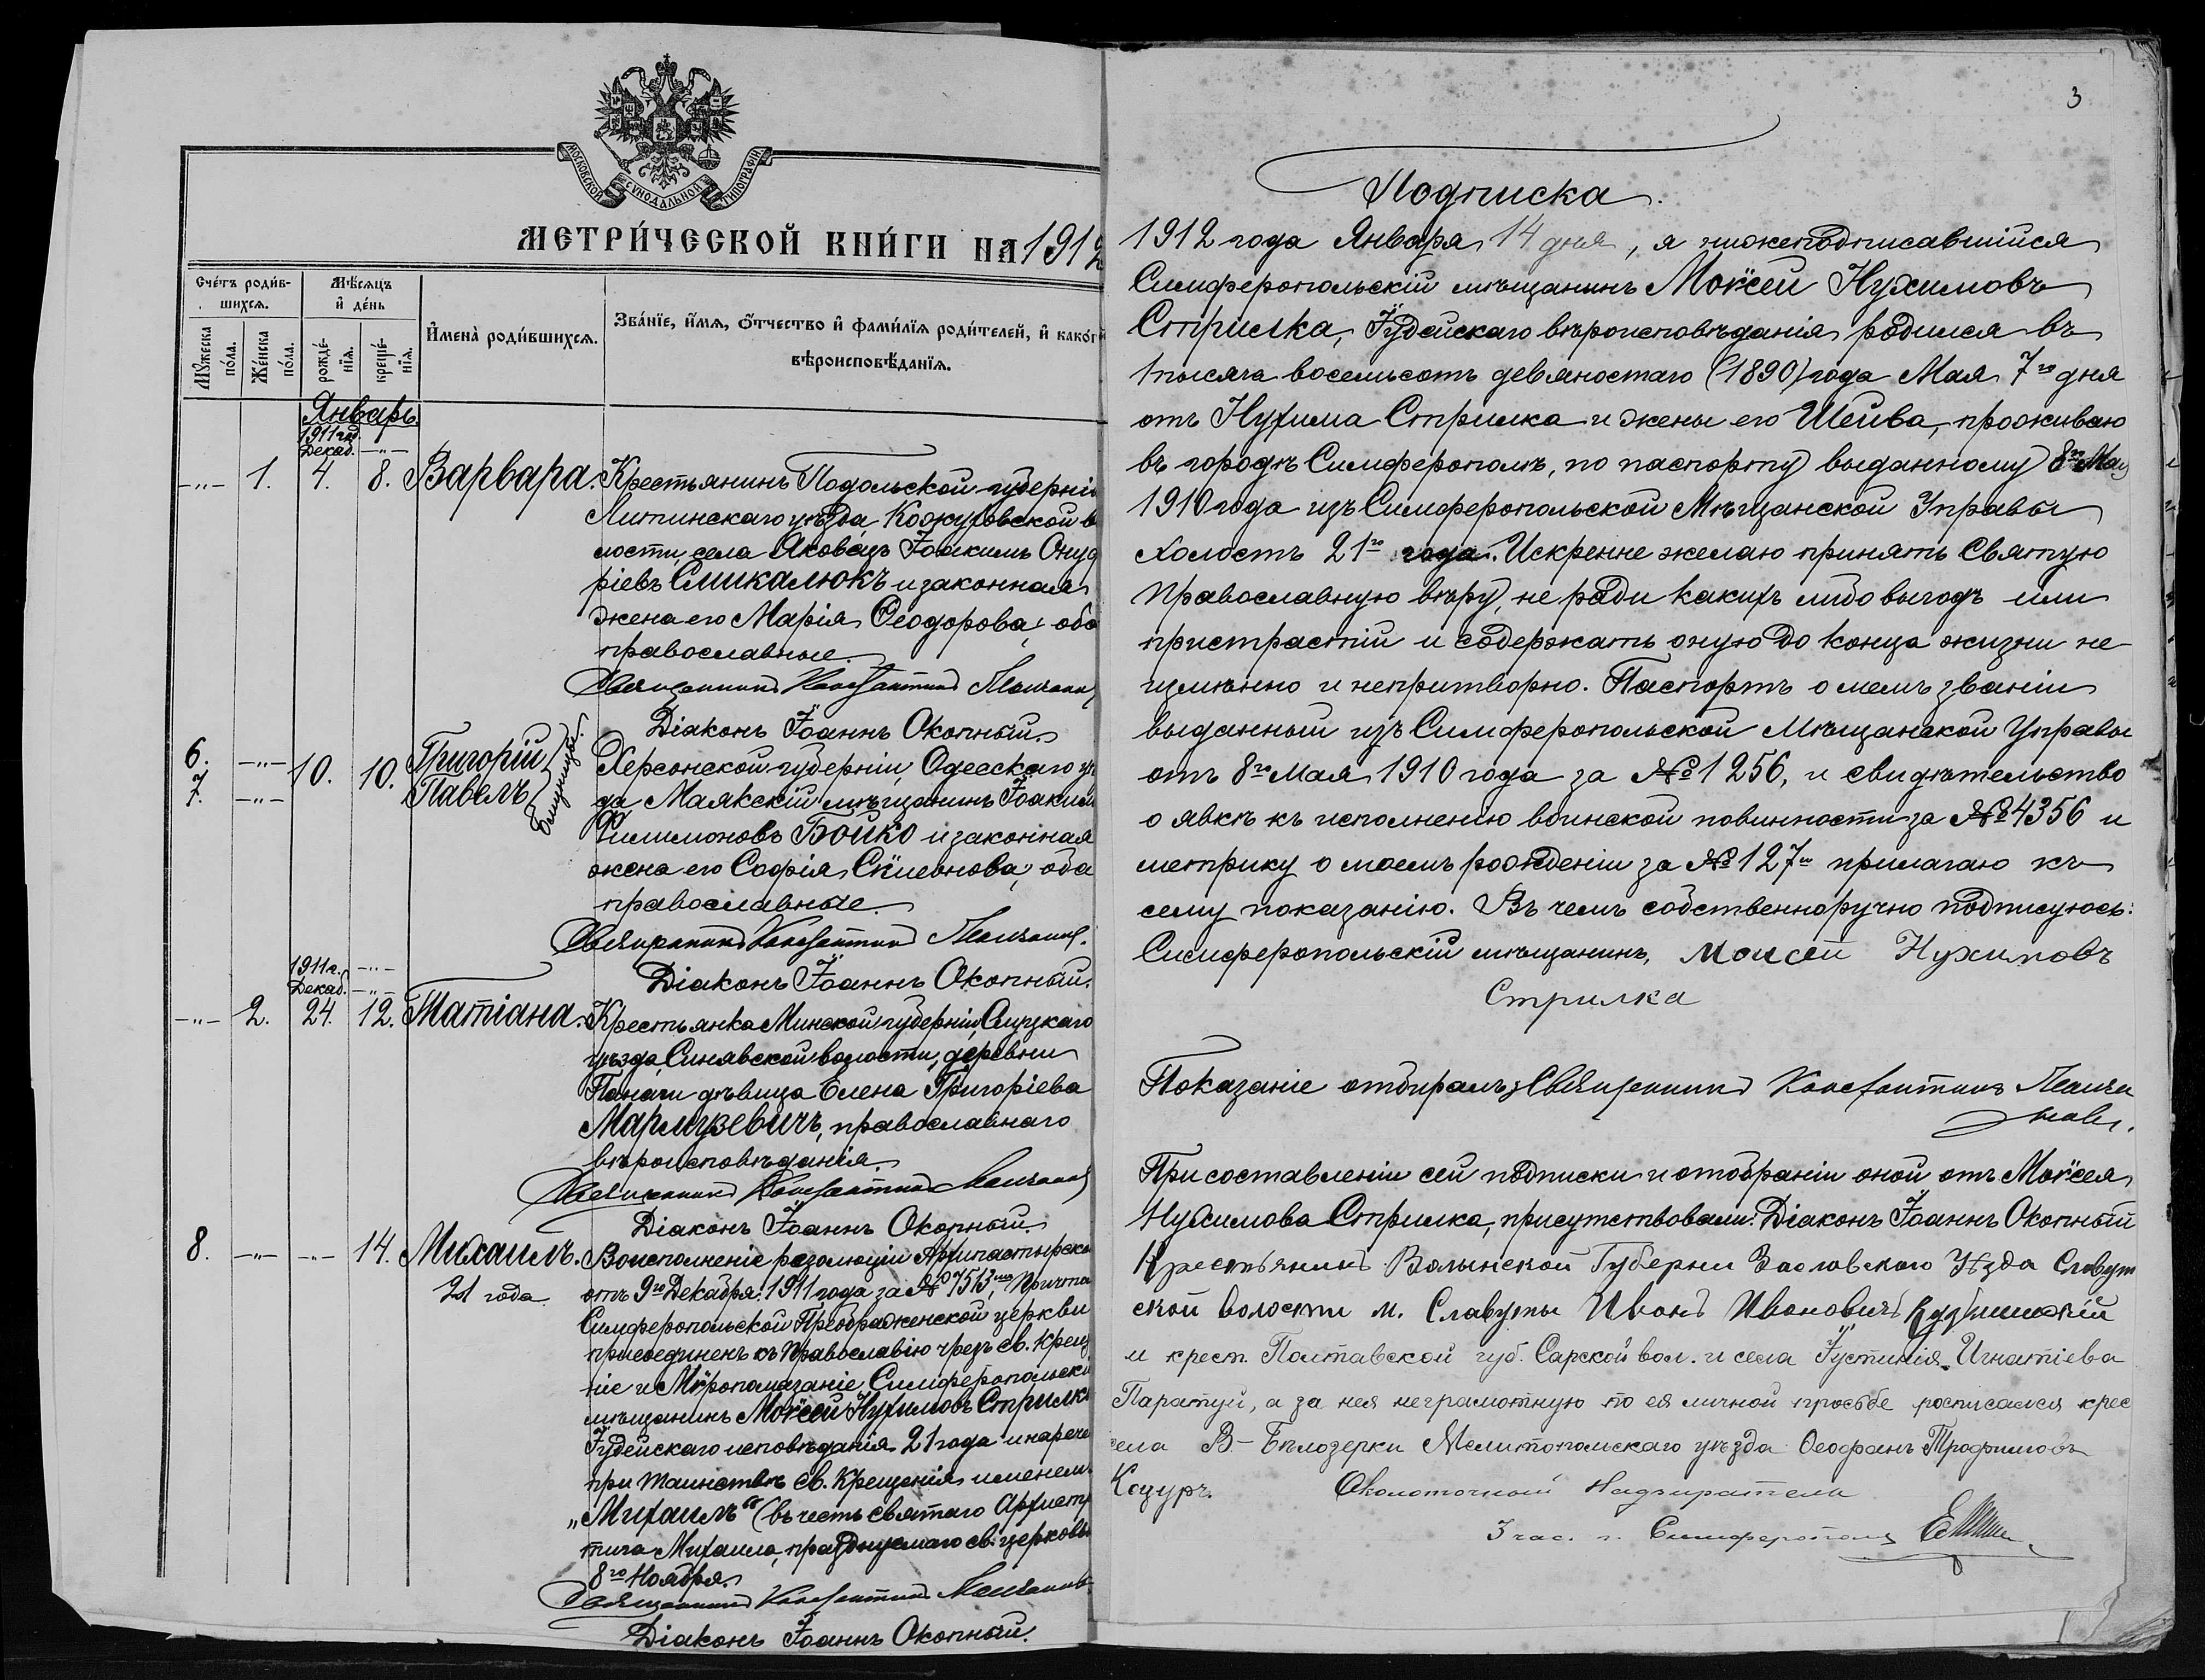 МОСКОВСКОЙ СѴНОДАЛЬНОЙ ТИПОГРАФІИ.
МЕТРИ́ЧЕСКОЙ КНИ́ГИ НА 1912
Сче́тъ роди́в-
шихся.
Мѣ́сяцъ
и де́нь
Мꙋжеска по́ла.
Же́нска по́ла.
рожде́-
нїя.
креще́-
нїя.
И҆мена̀ роди́вшихся.
Зва́нїе, и҆́мя, ѻ҆́тчество и҆ фами́лїя роди́телей, и҆ како́г
вѣроисповѣ́данїя.
Январь.
1911 год.
Декаб. -"-
-"- 1. 4. 8. Варвара. Крестьянинъ Подольской губерніи
Литинскаго уѣзда Кожуховской во
лости, села Яковецъ Іоакимъ Онуф
ріевъ Смикалюкъ и законная
жена его Марія Ѳеодорова, оба
православные.
Священникъ Константинъ
Діаконъ Іоаннъ Окопный.
6. -"- 10. 10. Григорій
7. -"- Павелъ
близнецы.
Херсонской губерніи, Одесскаго уѣ
да Маякскій мѣщанинъ Іоаким
Филимоновъ Бойко и законная
жена его Софія Сѵмеонова, оба
православные.
Священникъ Константинъ
Діаконъ Іоаннъ Окопный.
1911 г. -"-
Декаб. -"-
-"- 2. 24. 12. Татіана. Крестьянка Минской губерніи, Слуцкаго
уѣзда, Синявской волости, деревни
дѣвица Елена Григоріева
Мармузевичъ, православнаго
вѣроисповѣданія.
Священникъ Константинъ
Діаконъ Іоаннъ Окопный.
8. -"- -"- 14. Михаилъ. Во исполненіе резолюціи Архипастырско
21 года. отъ 9го Декабря 1911 года за № 7513, Причта
Симферопольской Преображенской церкви
присоединенъ къ Православію чрезъ св. Креще
ніе и Мѵропомазаніе Симферопольскі
мѣщанинъ Моѵсей Нухимовъ Стрилка
Іудейскаго исповѣданія 21 года и нарече
при таинствѣ св. Крещенія именем
„Михаилъ“ (въ честь святаго Архистр
тига Михаила, празднуемаго св. церковью
8го Ноября.
Священникъ Константинъ
Діаконъ Іоаннъ Окопный.
3
Подписка.
1912 года Января 14 дня, я нижеподписавшійся
Симферопольскій мѣщанинъ Моѵсей Нухимовъ
Стрилка, Іудейскаго вѣроисповѣданія, родился въ
1 тысяча восемьсотъ девяностаго (1890) года Мая 7го дня
отъ Нухима Стрилка и жены его Шейва, проживаю
въ городѣ Симферополѣ, по паспорту выданному 8го Мая
1910 года изъ Симферопольской Мѣщанской Управы
холостъ 21го года. Искренне желаю принять Святую
Православную вѣру, не ради какихъ либо выгодъ или
пристрастій и содержать оную до конца жизни не-
измѣнно и непритворно. Паспортъ о моемъ званіи
выданный изъ Симферопольской Мѣщанской Управы
отъ 8го Мая 1910 года за № 1256, и свидѣтельство
о явкѣ къ исполненію воинской повинности за № 4356 и
метрику о моемъ рожденіи за № 127 прилагаю къ
сему показанію. Въ чемъ собственноручно подписуюсь:
Симферопольскій мѣщанинъ, Моисей Нухимовъ
Стрилка
Показаніе отбиралъ: Священникъ Константинъ
При составленіи сей подписки и отобраніи оной отъ Моѵсея
Нухимова Стрилка, присутствовали: Діаконъ Іоаннъ Окопный
Крестьянинъ Волынской Губерни Заславского Уѣзда Славут
ской волости м. Славуты Иванъ Ивановичъ
и крест. Полтавской губ. Сарской вол. и села Іустинія Игнатіева
Паратуй, а за нея неграмотную по ея личной просьбе росписался крес
села В-Бѣлозерки Мелитопольскаго уѣзда Ѳеофанъ Трофимовъ
Коцуръ. Околоточный Надзиратель
3 час. г. Симферополя